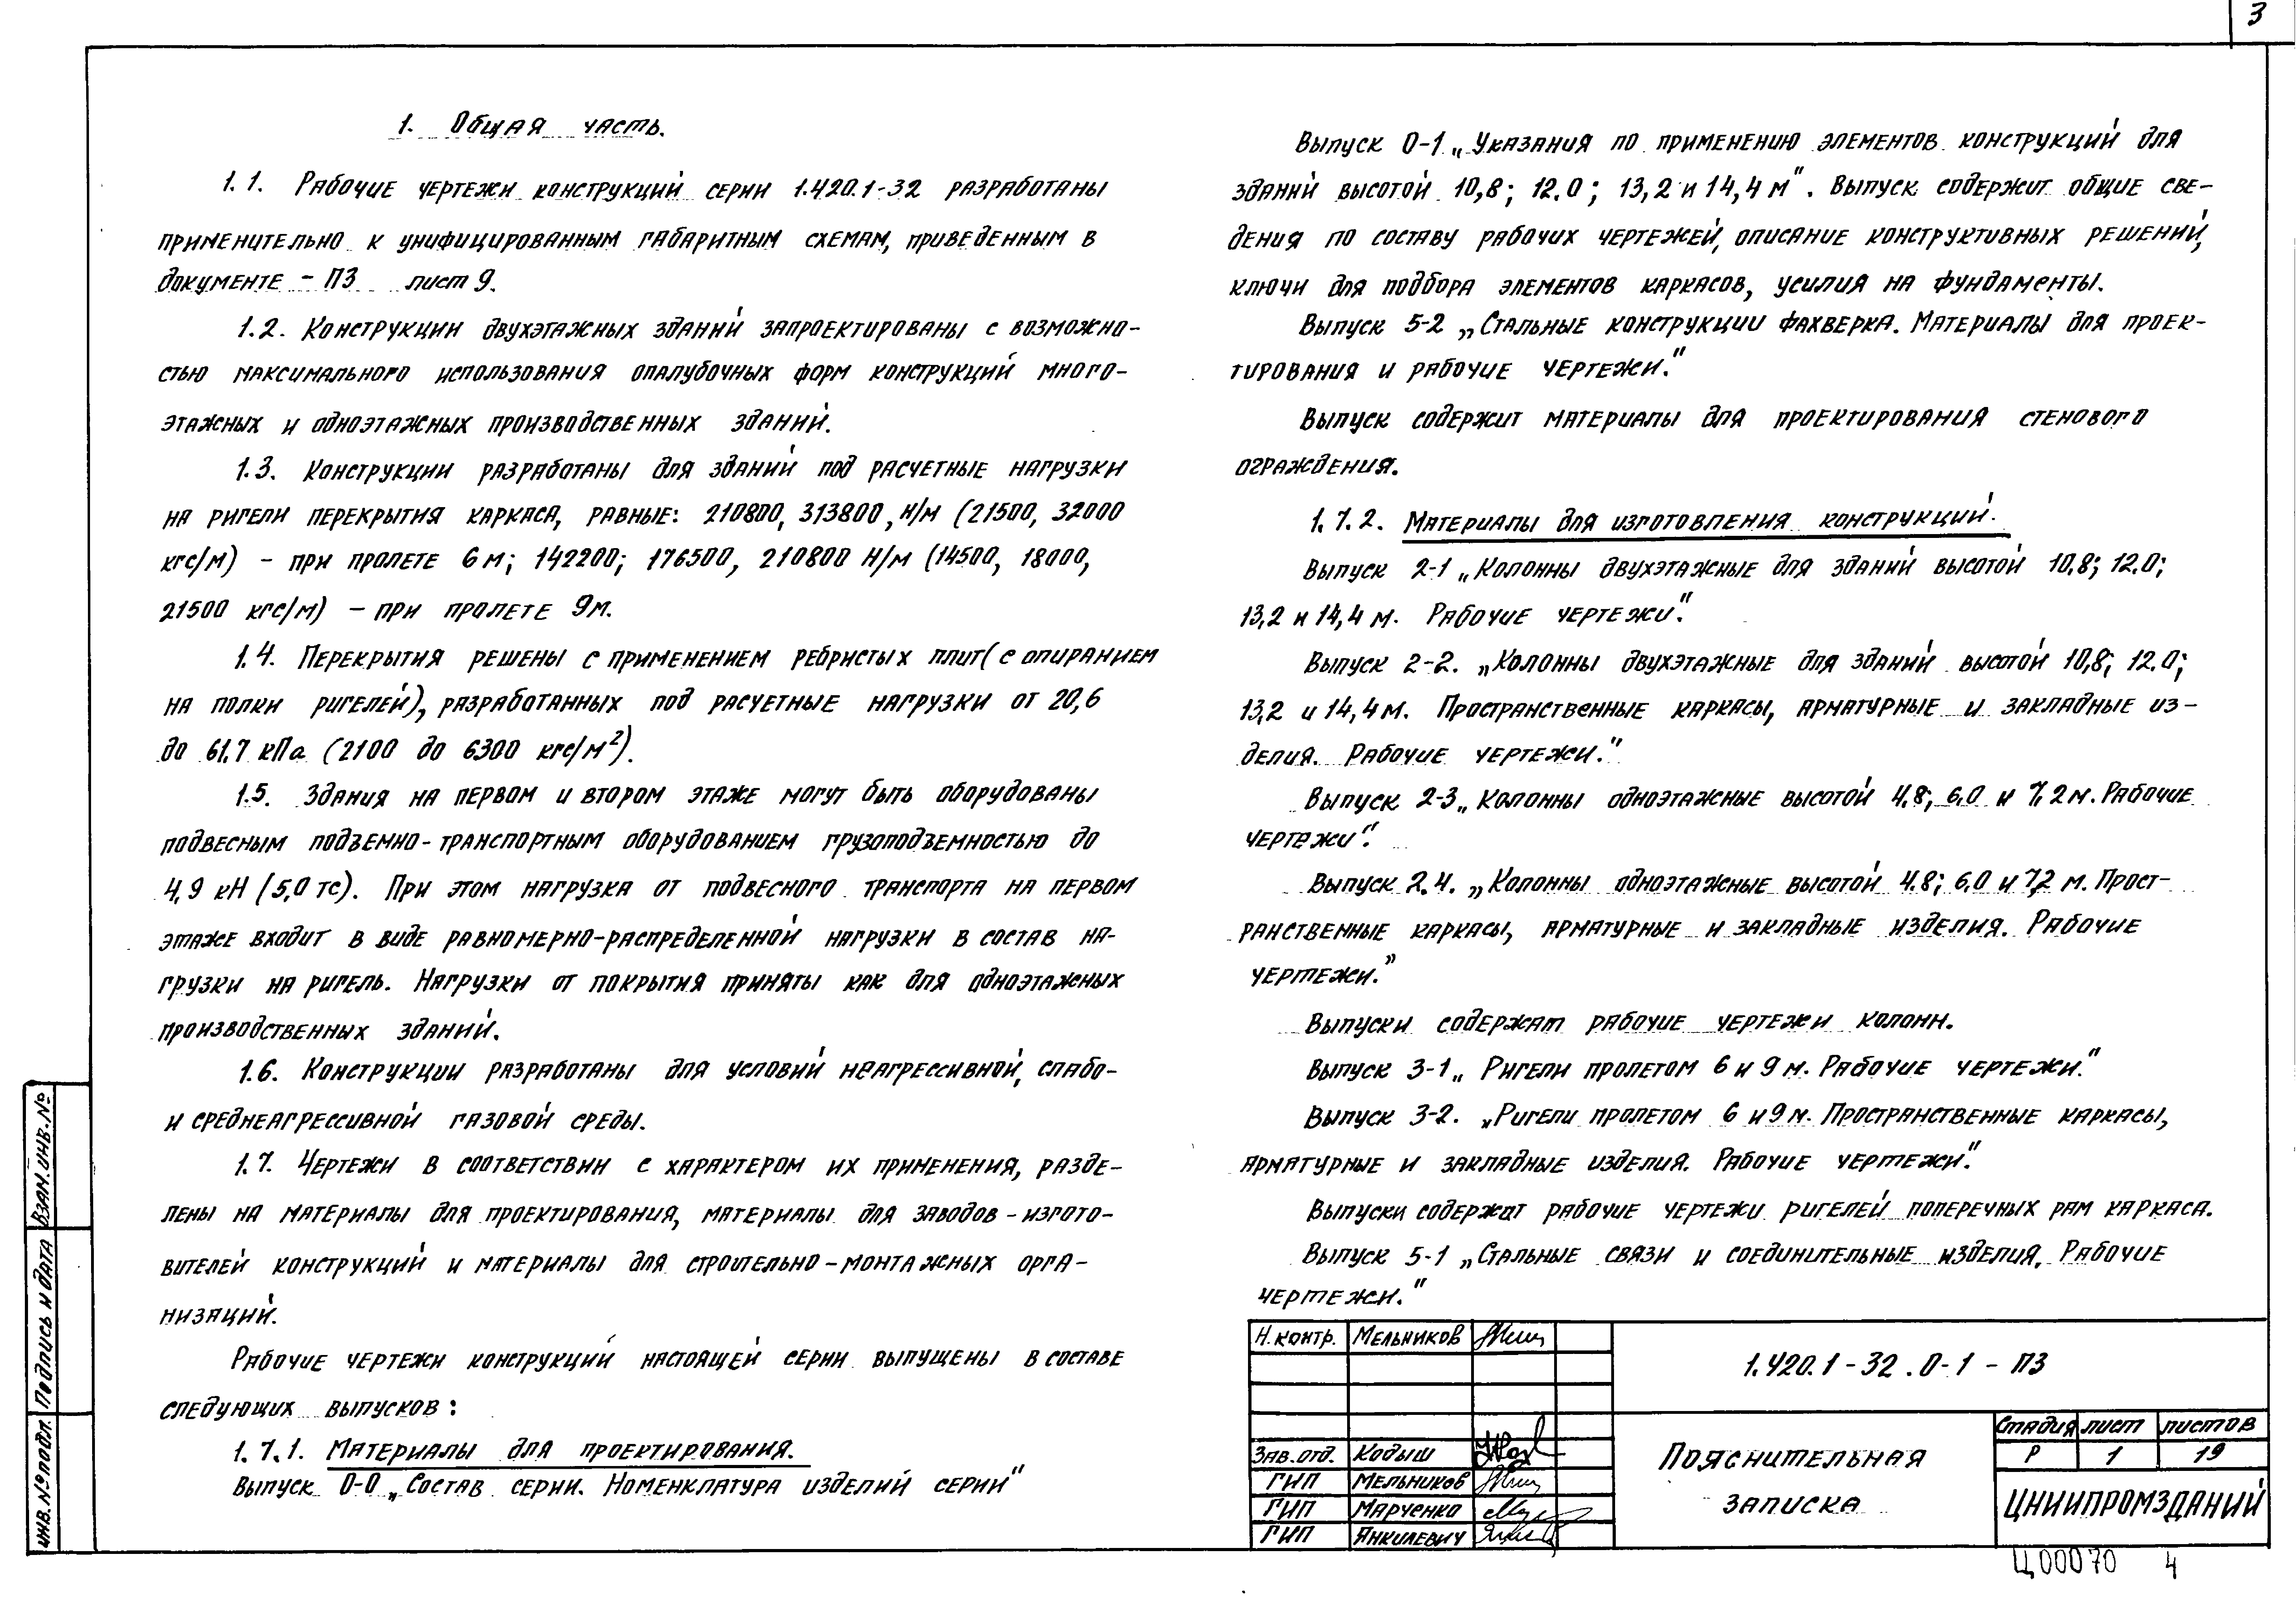 3
1. Общая часть.
1.1. Рабочие чертежи конструкций серии 1.420.1-32 разработаны
применительно к унифицированным габаритным схемам, приведенным в
документе - ПЗ лист 9.
1.2. Конструкции двухэтажных зданий запроектированы с возможно-
стью максимального использования опалубочных форм конструкций много-
этажных и одноэтажных производственных зданий.
1.3. Конструкции разработаны для зданий под расчетные нагрузки
на ригели перекрытия каркаса, равные: 210800, 313800, н/м (21500, 32000
кгс/м) - при пролете 6 м; 142200; 176500, 210800 н/м (14500, 18000,
21500 кгс/м) - при пролете 9м.
1.4. Перекрытия решены с применением ребристых плит (с опиранием
на полки ригелей), разработанных под расчетные нагрузки от 20,6
до 61,7 кПа (2100 до 6300 кгс/м²).
1.5. Здания на первом и втором этаже могут быть оборудованы
подвесным подъемно-транспортным оборудованием грузоподъемностью до
4,9 кН (5,0 тс). При этом нагрузка от подвесного транспорта на первом
этаже входит в виде равномерно-распределенной нагрузки в состав на-
грузки на ригель. Нагрузки от покрытия приняты как для одноэтажных
производственных зданий.
1.6. Конструкции разработаны для условий неагрессивной, слабо-
и среднеагрессивной газовой среды.
1.7. Чертежи в соответствии с характером их применения, разде-
лены на материалы для проектирования, материалы для заводов-изгото-
вителей конструкций и материалы для строительно-монтажных орга-
низаций.
Рабочие чертежи конструкций настоящей серии выпущены в составе
следующих выпусков:
1.7.1. Материалы для проектирования.
Выпуск 0-0 „Состав серии. Номенклатура изделий серии"
Выпуск 0-1 „Указания по применению элементов конструкций для
зданий высотой 10,8; 12.0; 13,2 и 14,4 м". Выпуск содержит общие све-
дения по составу рабочих чертежей, описание конструктивных решений,
ключи для подбора элементов каркасов, усилия на фундаменты.
Выпуск 5-2 „Стальные конструкции фахверка. Материалы для проек-
тирования и рабочие чертежи."
Выпуск содержит материалы для проектирования стенового
ограждения.
1.7.2. Материалы для изготовления конструкций.
Выпуск 2-1 „Колонны двухэтажные для зданий высотой 10,8; 12.0;
13,2 и 14,4 м. Рабочие чертежи".
Выпуск 2-2. „Колонны двухэтажные для зданий высотой 10,8; 12.0;
13,2 и 14,4м. Пространственные каркасы, арматурные и закладные из-
делия. Рабочие чертежи."
Выпуск 2-3 „Колонны одноэтажные высотой 4.8; 6.0 и 7,2м. Рабочие
чертежи".
Выпуск 2.4. „Колонны одноэтажные высотой 4.8; 6.0 и 7,2 м. Прост-
ранственные каркасы, арматурные и закладные изделия. Рабочие
чертежи."
Выпуски содержат рабочие чертежи колонн.
Выпуск 3-1 „Ригели пролетом 6 и 9 м. Рабочие чертежи."
Выпуск 3-2. „Ригели пролетом 6 и 9 м. Пространственные каркасы,
арматурные и закладные изделия. Рабочие чертежи".
Выпуски содержат рабочие чертежи ригелей поперечных рам каркаса.
Выпуск 5-1 „Стальные связи и соединительные изделия. Рабочие
чертежи."
Н.контр. Мельников
1.420.1-32.0-1-ПЗ
Зав.отд. Кодыш
ГИП Мельников
ГИП Марченко
ГИП Янкилевич
Пояснительная
записка
Стадия лист листов
Р 1 19
ЦНИИПРОМЗДАНИЙ
Ц00070 4
Взам.инв.№
Подпись и дата
инв.№подл.